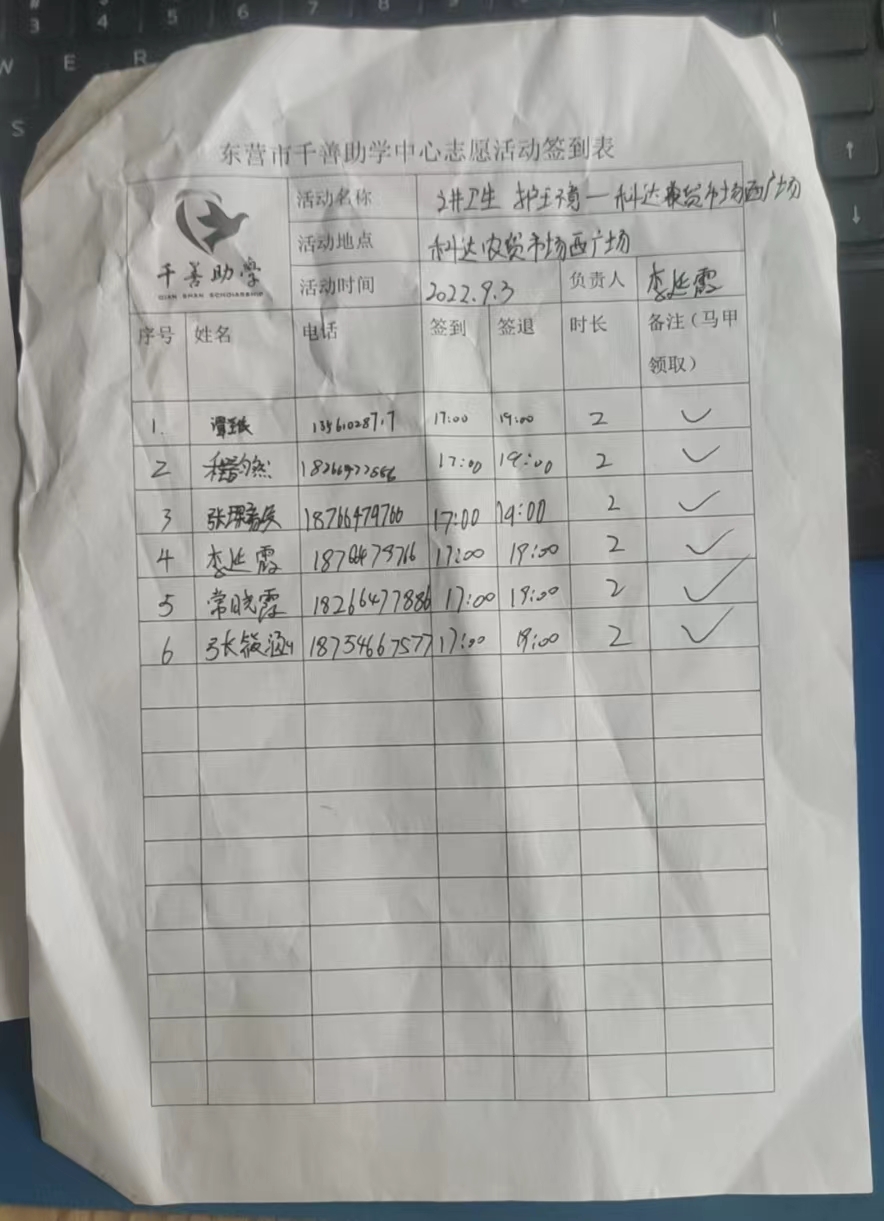 东营市千善助学中心志愿活动签到表
千善助学
QIAN SHAN SCHOLARSHIP
活动名称 讲卫生 护环境一科达农贸市场西广场
活动地点 科达农贸市场西广场
活动时间 2022.9.3 负责人 李延霞
序号 姓名 电话 签到 签退 时长 备注(马甲领取)
1. 17:00 19:00 2 ✓
2 17:00 19:00 2 ✓
3 18766479700 17:00 19:00 2 ✓
4 李延霞 17:00 19:00 2 ✓
5 常晓霞 18266477886 17:00 19:00 2 ✓
6 张筱涵 18754667577 17:00 19:00 2 ✓